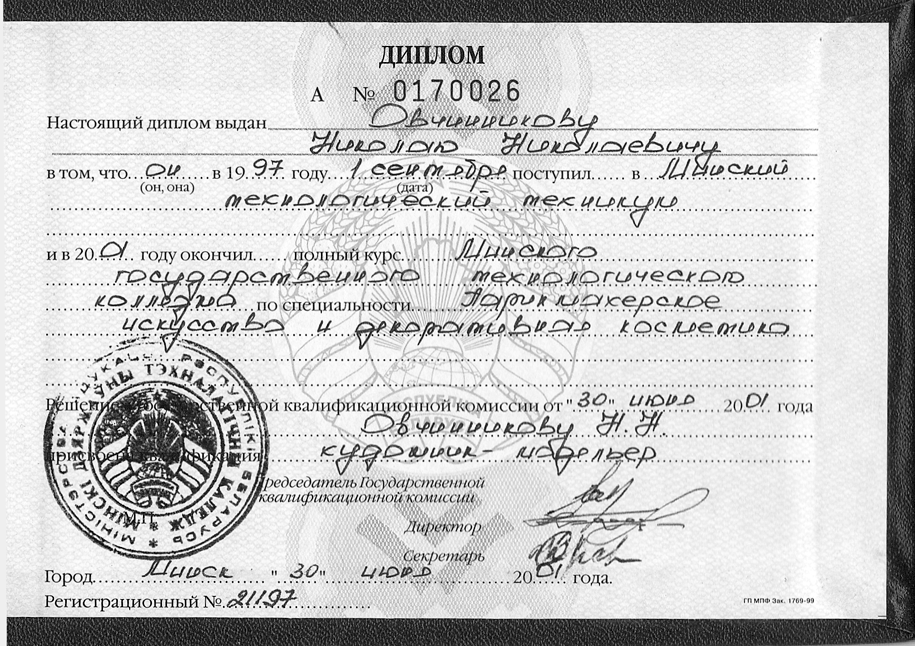 ДИПЛОМ
А № 0170026
Настоящий диплом выдан Овчинникову
Николаю Николаевичу
в том, что он в 1997 году 1 сентября поступил в Минский
(он, она) (дата)
технологический техникум
и в 2001 году окончил полный курс Минского
государственного технологического
колледжа по специальности Парикмахерское
искусство и декоративная косметика
Решением Государственной квалификационной комиссии от "30" июня 2001 года
Овчинникову Н.Н.
присвоена квалификация художник-модельер
Председатель Государственной
квалификационной комиссии
М.П.
Директор
Секретарь
Город Минск "30" июня 2001 года.
Регистрационный № 21197
ГП МПФ Зак. 1769-99
МІНІСТЭРСТВА АДУКАЦЫІ РЭСПУБЛІКІ БЕЛАРУСЬ
МІНСКІ ДЗЯРЖАЎНЫ ТЭХНАЛАГІЧНЫ КАЛЕДЖ